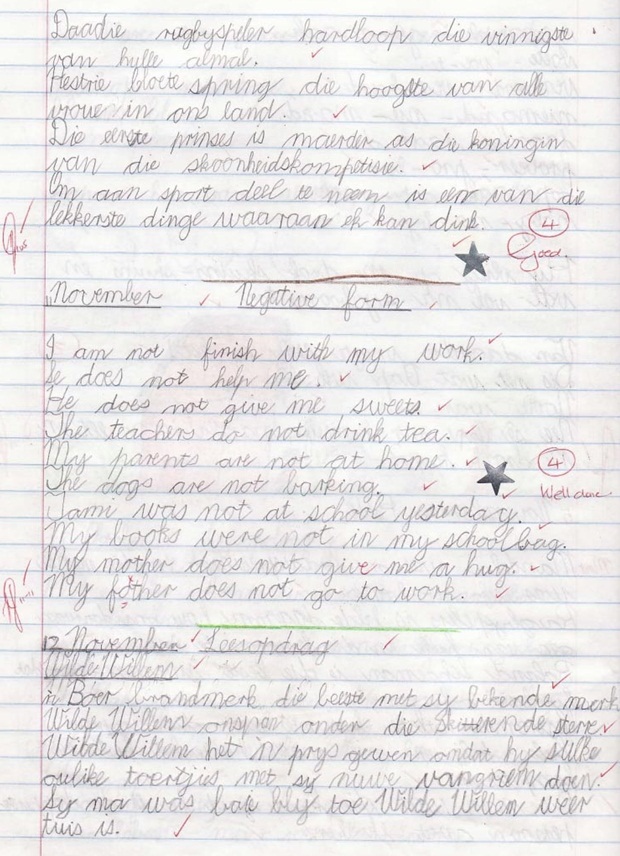 Daadie rugbyspeler hardloop die vinnigste
van hulle almal.
Hestrie Cloete spring die hoogste van alle
vroue in ons land.
Die eerste prinses is maerder as die koningin
van die skoonheidskompetisie.
Om aan sport deel te neem is een van die
lekkerste dinge waaraan ek kan dink.
4
Good.
November Negative form
I am not finish with my work.
He does not help me.
He does not give me sweets.
The teachers do not drink tea.
My parents are not at home.
4
The dogs are not barking.
Well done
Tami was not at school yesterday.
My books were not in my schoolbag.
My mother does not give me a hug.
My father does not go to work.
12 November Leesopdrag
Wilde Willem
'n Boer brandmerk die beeste met sy bekende merk
Wilde Willem onspan onder die skitterende sterre
Wilde Willem het 'n prys gewen omdat hy sulke
oulike toertjies met sy nuwe vangriem doen.
Sy ma was baie bly toe Wilde Willem weer
tuis is.